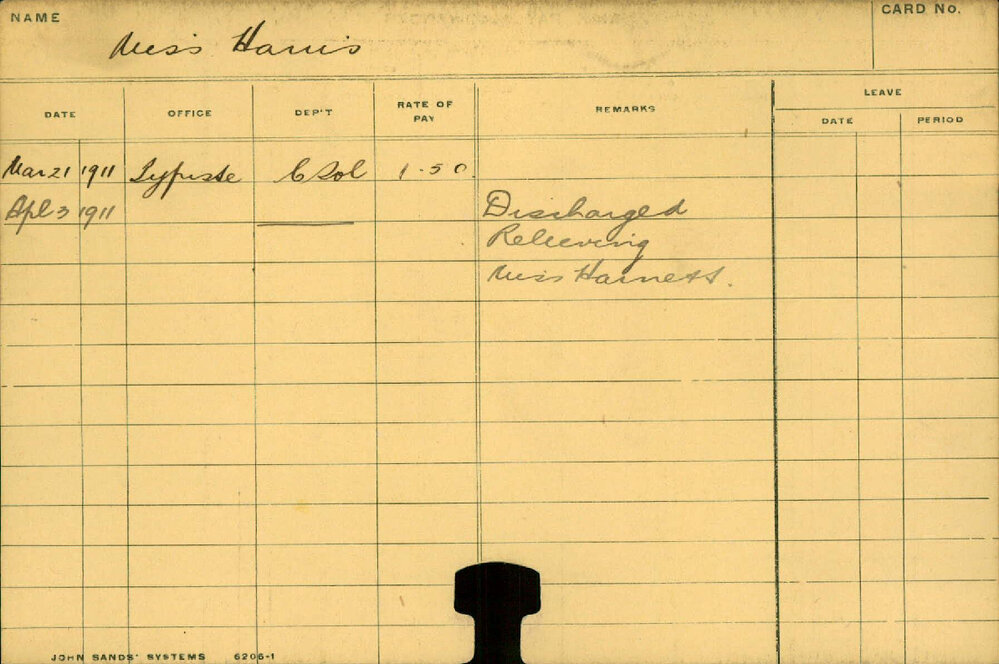 NAME
Miss Harris
CARD No.
DATE OFFICE DEP'T RATE OF PAY REMARKS LEAVE
DATE PERIOD
Mar 21 1911 Typiste C Sol 1-5 0
Apl 3 1911 Discharged
Relieving
Miss Harnett.
JOHN SANDS' SYSTEMS 6206-1